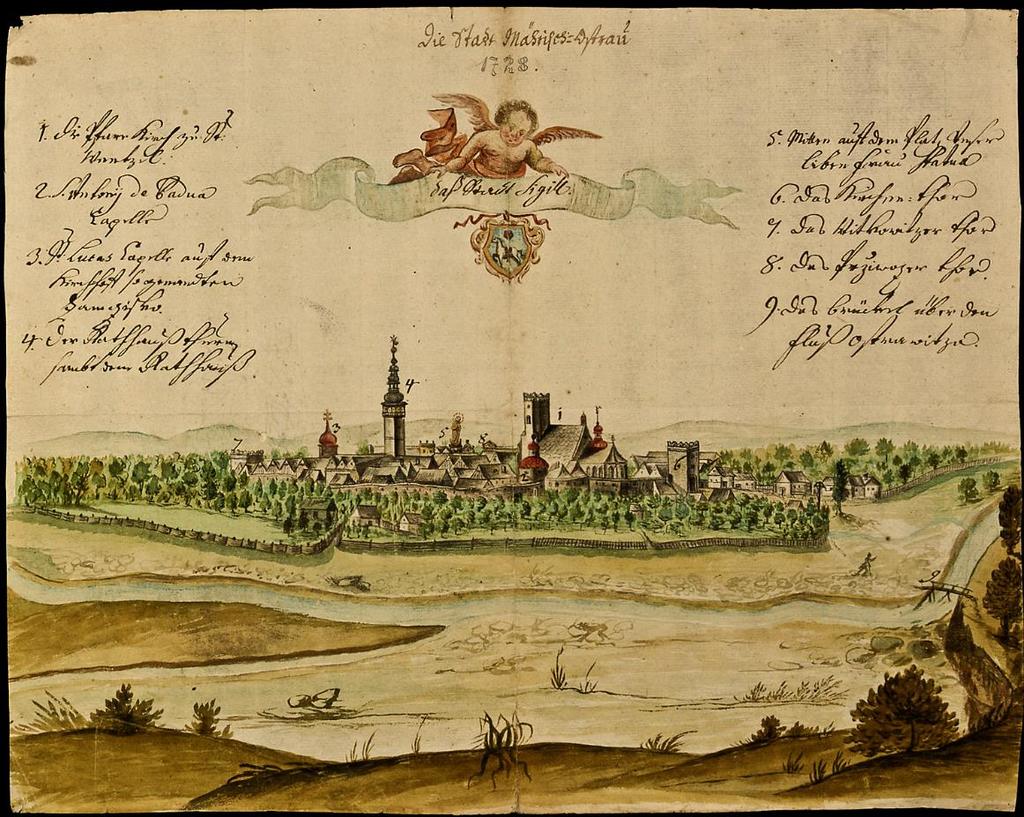 Die Stadt Mährisch-Ostrau
1728.
das Stadt Sigill.
1. Die Pfarr Kirch zu St.
Wentzel.
2. S. Antony de Padua
Capelle
3. St Lucas Capelle auf dem
Kirchhoff so genandten
4. Der Rathhauß thurm
sambt dem Rathhauß
5. Mitten auf dem Platz Unser
liben Frau Statua
6. Das Kirchen-thor
7. das Witkowitzer thor
8. das Prziwozer thor.
9. das brückel über den
fluß Ostrawitza.
7
3
4
5
8
1
2
6
9